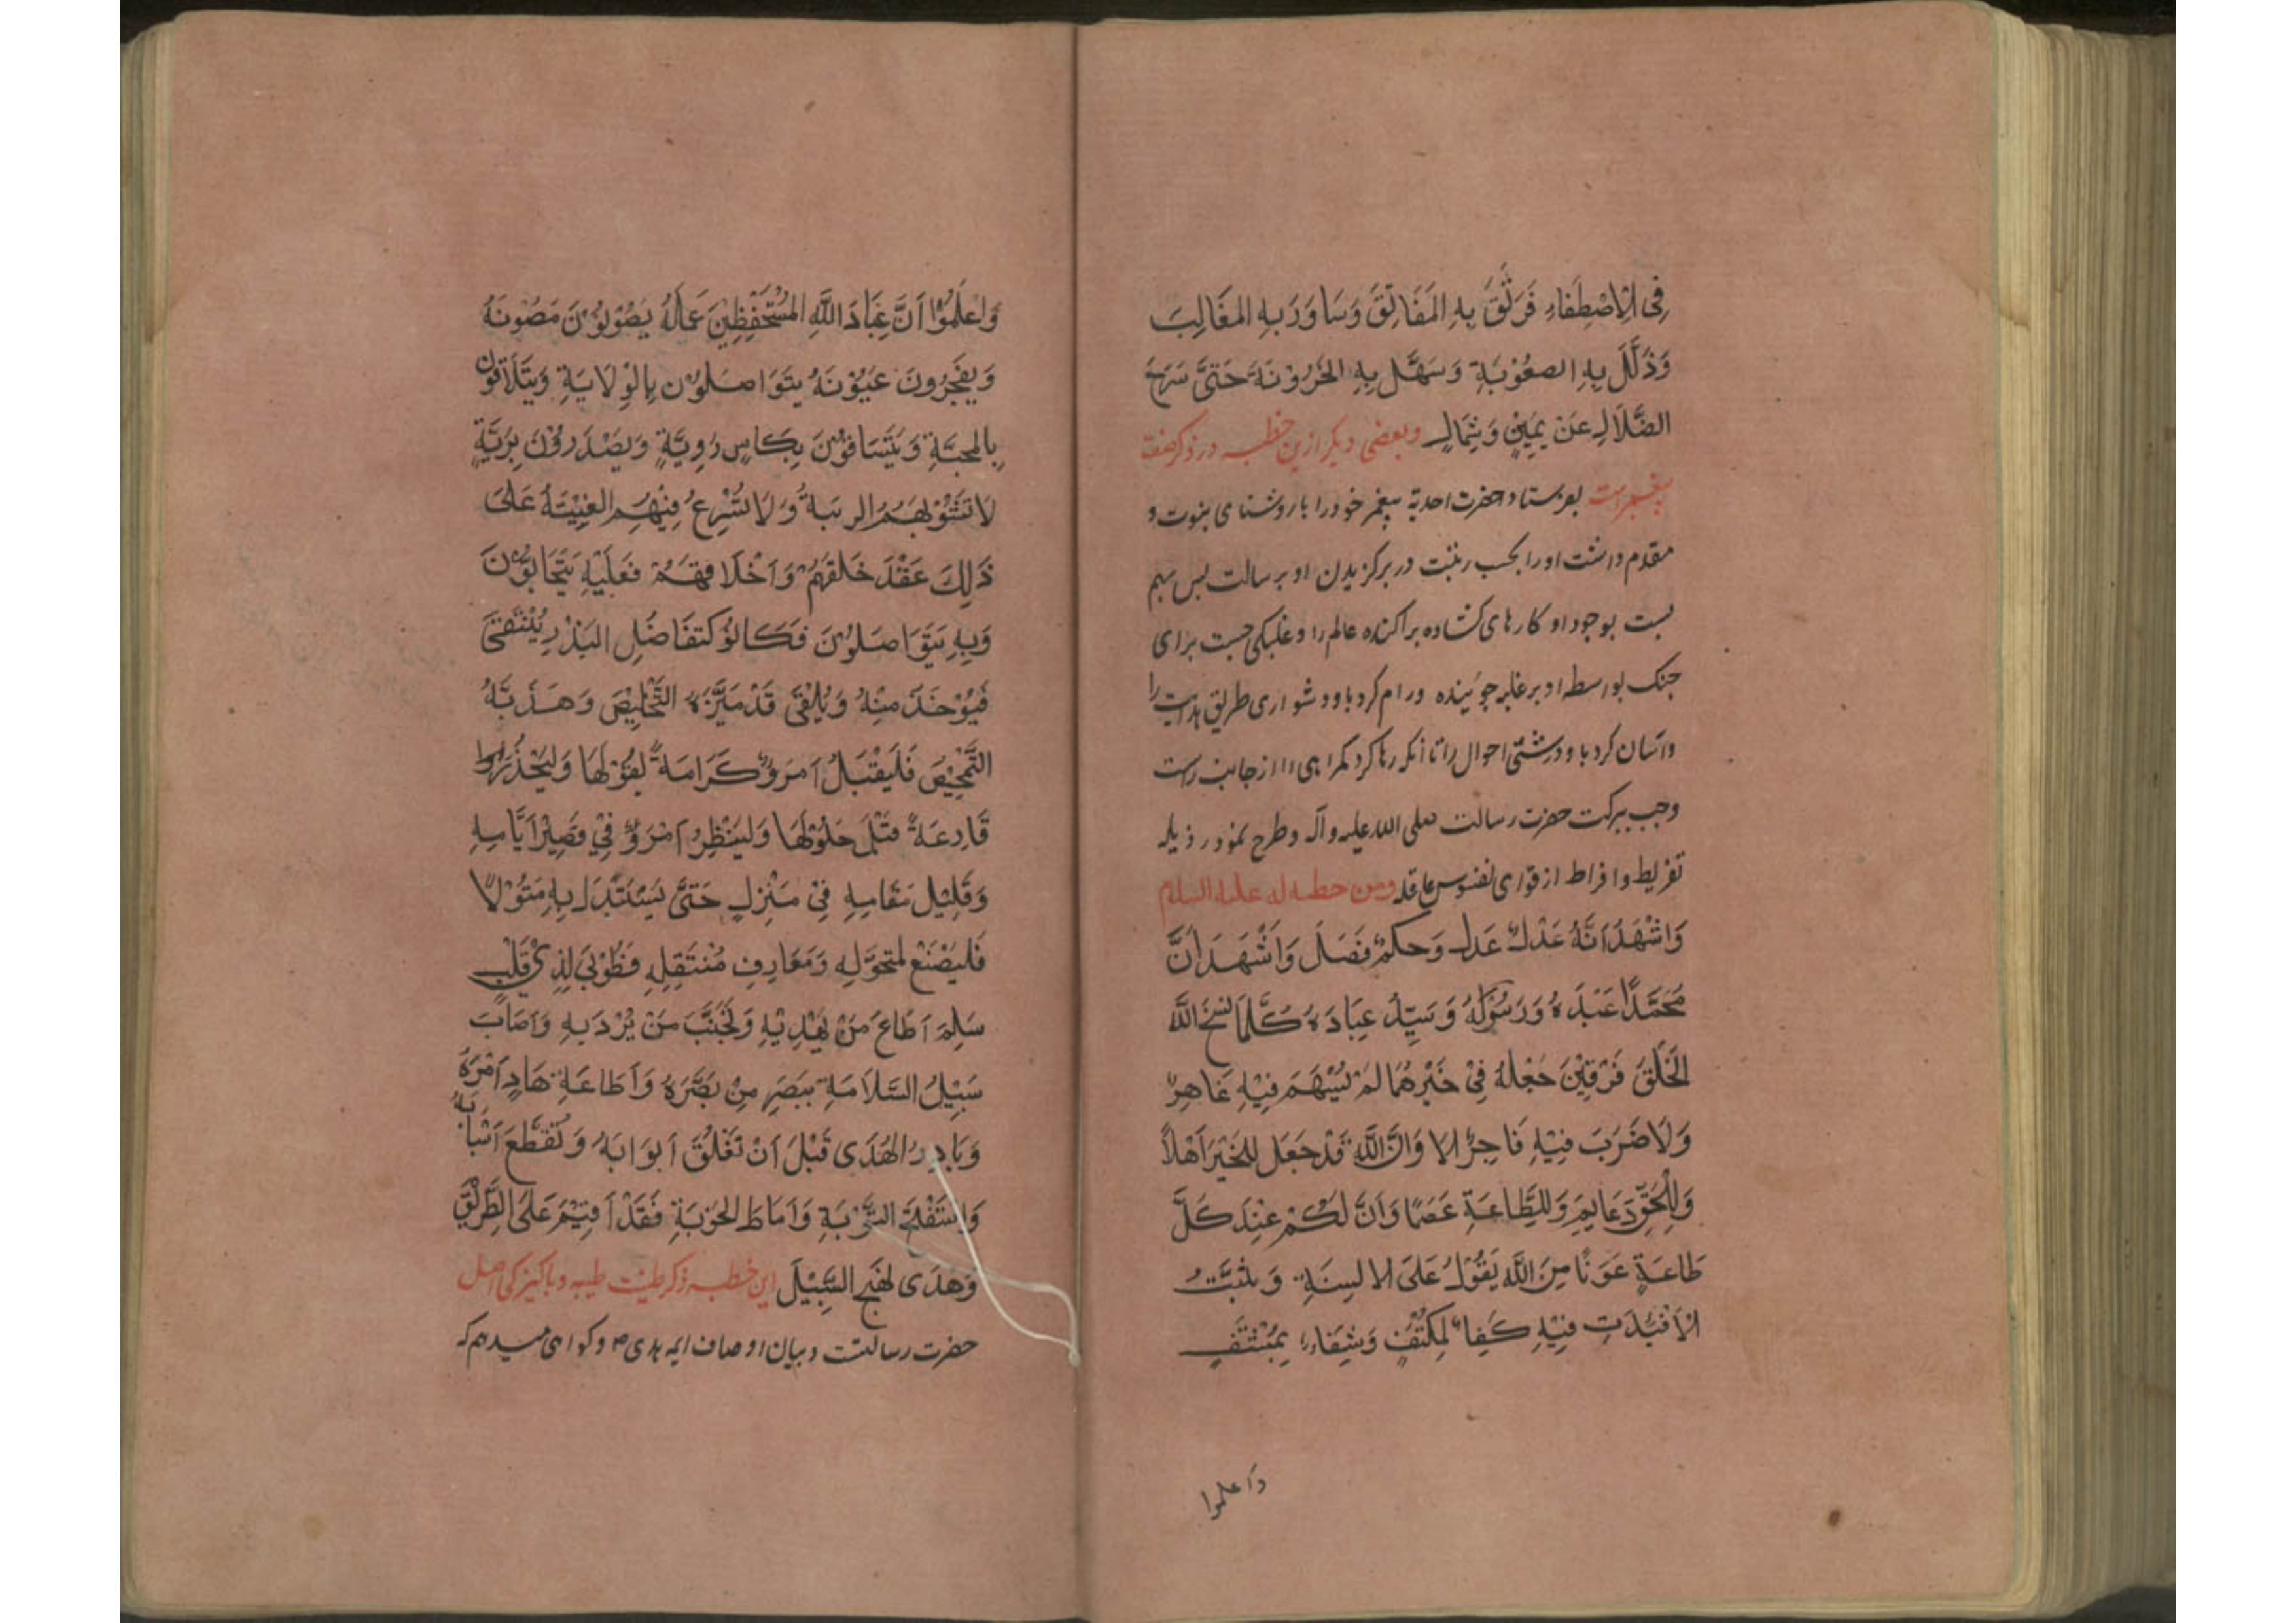 فِی الْاِصْطِفَاءِ فَرَتَّقَ بِهِ المَفَاتِقَ وَسَاوَرَ بِهِ المَغَالِبَ
وَذَلَّلَ بِهِ الصعُوْبَةِ وَسَهَّلَ بِهِ الحَرُوْنَةَ حَتَّیٰ سَرَحَ
الضَّلَالَ عَنْ يَمِيْنٍ وَشِمَالٍ وبعضی دیکر ازین خطبه در ذکر صفت
پیغمبر است بفرستاد حضرت احدیة پیغمبر خود را با روشنای نبوت و
مقدم داشت او را بحسب رتبت در برکزیدن او برسالت پس بهم
بست بوجود او کارهای کشاده پراکنده عالم را و غلبکی جست برای
جنک بواسطه او بر غلبه جوینده و رام کرد باو دشواری طریق هدایت را
وآسان کرد باو درشتی احوال را تا آنکه رها کرد کمراهی را از جانب راست
وچپ ببرکت حضرت رسالت صلی الله علیه وآله وطرح نمود رذیله
تفریط وافراط از قوای نفوس عاقله ومن خطبه له علیه السلام
وَاشْهَدُ اَنَّهُ عَدْلٌ عَدلَ وَحكمٌ فَصَلَ وَاَشْهَدُ اَنَّ
مُحَمَّدًا عَبْدَهُ وَرَسُوْلُهُ وَسَيِّدُ عِبَادَهُ كُلَّمَا نسَخَ اللَّه
الخَلْقَ فَرْقِيْنَ جَعْلَهُ فِیْ خَيْرِهُمَا لَمْ يُسْهَمَ فِيْهِ عَاهِرٌ
وَلَا ضَرَبَ فِيْهِ فَاجِرٌ الا وَانَّ اللَّهِ قَدْ جَعَلَ لِلْخَيْرِ اَهْلاً
وَلِلْحَقِّ دَعَايِمَ وَلِلطَّاعَةِ عَصَمًا وَاَنَّ لَكُمْ عِنْدَ كَلَّ
طَاعَةٍ عَوْنًا مِنَ اللَّه يَقُوْلُ عَلَى الالسِنَةِ وَيثبَّتُ
الاَفْئِدَتِ فِيْهِ كَفِاءٌ لِمُكتَفٍ وَشِفَاءٌ لِمُشْتَفٍ
واعلموا
وَاعلَمُوْا اَنَّ عِبَادَ اللَّهِ المُسْتَحْفَظِيْنَ عَمَلَهُ يَصُوْنُوْنَ مَصُوْنَهُ
وَيفَجِّرُونَ عَيُوْنَهُ يتَوَاصلُوْن بِالْوِلَايَةِ وَيَتَلَاقَوْن
بِالمحَبَّةِ وَيَتَسَاقَوْنَ بِكَاسٍ رَوِيَّةٍ وَيَصْدَرُوْنَ بِرَيَّةٍ
لَا تَشُوْبهُمُ الريبَةُ وَلَا تُسْرِعُ فِيْهُمِ الغِيْبَةُ عَلَی
ذَلِكَ عَقْدَ خَلقَهُمْ وَاَخْلَاقهُمْ فعَلَيْهِ يَتَحَابُّوْنَ
وَبِهِ يَتَوَاصَلُوْنَ فَكَانُوْ كَتفَاضُلِ البَذْرِ يُنْتَقیٰ
فَيُوْخَذ مِنْهُ وَيُلْقَی قَدْ مَيَّزَهُ التَّخْلِيْصَ وَهَذَّبَهُ
التَّمْحِيْصَ فَلْيَقْبَلُ امرَوٌ كَرَامَةً لِقُوْلَهَا وَليَحْذَرُوا
قَارِعَةً قَبْلَ حَلُوْلَهَا وَليَنْظِرُ اَمْرَوٌ فِیْ قَصِيْرِ اَيَّامِهِ
وَقَلِيْل مَقَامِهِ فِیْ مَنْزِلٍ حَتَّیٰ يَسْتَبْدَلَ بِهِ مَنْزِلًا
فَليَصْنَعْ لِمتحَوَّلِهِ وَمَعَارِفِ مُنْتَقِلِهِ فَطُوْبَیٰ لِذِیْ قَلْبٍ
سَلِيْمَ اَطَاعَ مَنْ يَهْدِيْهِ وَتَجَنَّبَ مَنْ يُرْدِيهِ وَاَصَابَ
سَبِيْلُ السَّلَامَةِ ببَصَرِ مِنْ بَصَّرَهُ وَاَطَاعَةِ هَادٍ اَمْرَهُ
وَبَادرُ الهُدَی قَبْلَ اَنْ تَغْلُقَ اَبوَابَهُ وَتقَطَّعَ اَسْبَابُهُ
وَاسْتَفْتَحَ التَّوْبَةِ وَاَمَاطَ الحَوْبَةِ فَقَدْ اَقِيْمَ عَلَی الطَّرِيْقِ
وَهُدَی لِنَهَجِ السَّبِيْلَ این خطبه ذکر طینت طیبه و پاکیزکی اصل
حضرت رسالتست و بیان اوصاف ایمه هدی ص و کواهی میدهم که